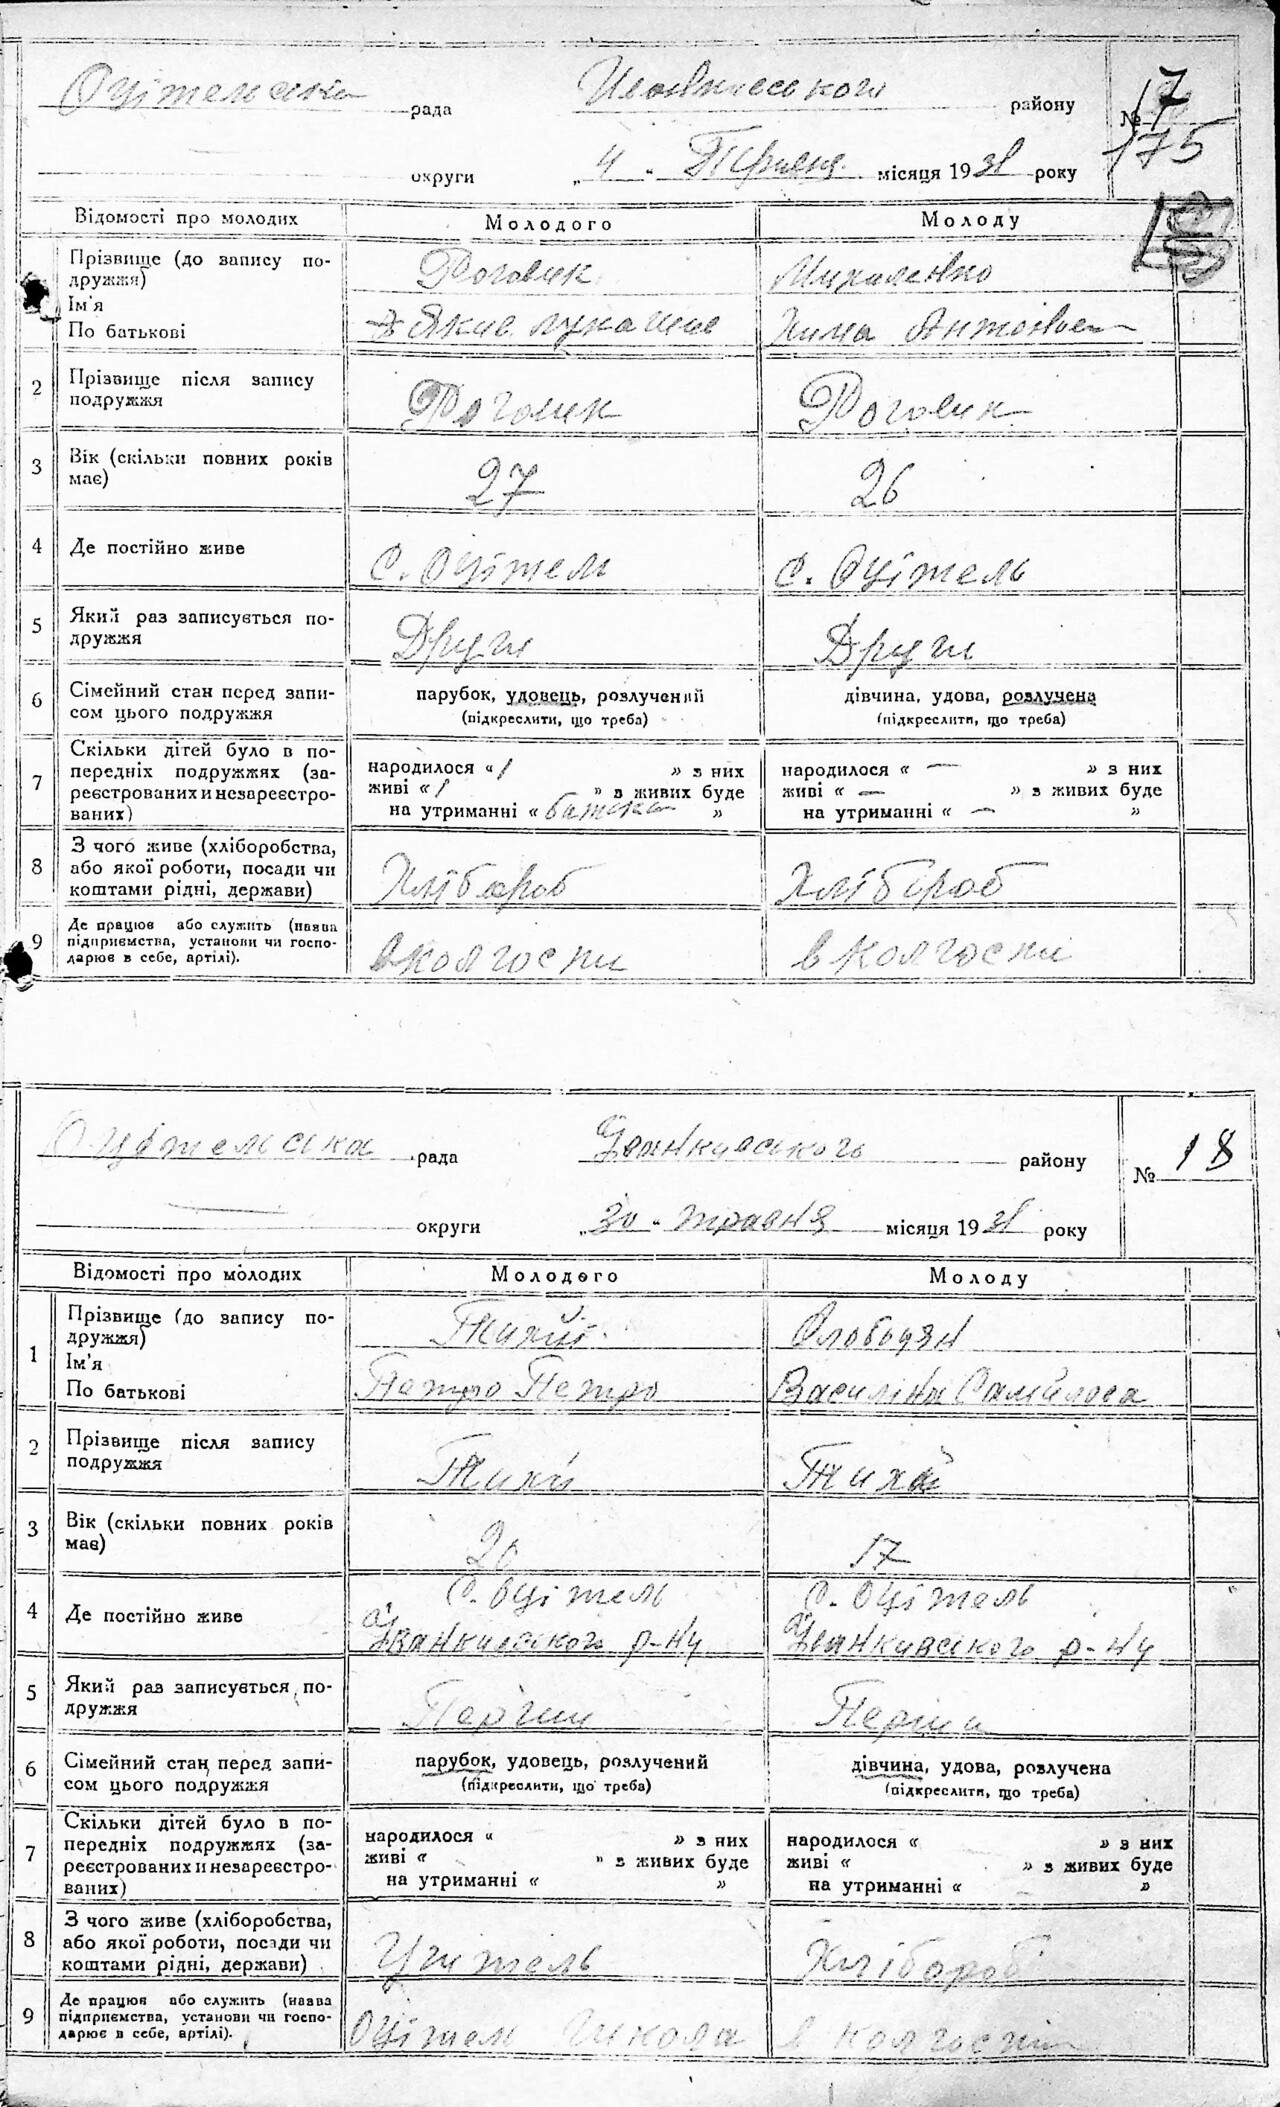 Оцітельська рада Іванківського району № 17
округи „4“ Травня місяця 1931 року 175
Відомості про молодих Молодого Молоду
Прізвище (до запису по-дружжя) Роговик Михаленко
Ім'я
По батькові Яким Лукашов Хима Антонівен
2 Прізвище після запису подружжя Роговик Роговик
3 Вік (скільки повних років має) 27 26
4 Де постійно живе с. Оцітель с. Оцітель
5 Який раз записується по-дружжя Други Други
6 Сімейний стан перед запи-сом цього подружжя парубок, удовець, розлучений (підкреслити, що треба) дівчина, удова, розлучена (підкреслити, що треба)
7 Скільки дітей було в по-передніх подружжях (за-реєстрованих и незареєстро-ваних) народилося «1 » з них живі «1 » з живих буде на утриманні «батька » народилося « — » з них живі « — » з живих буде на утриманні « — »
8 З чого живе (хліборобства, або якої роботи, посади чи коштами рідні, держави) Хлібороб Хлібороб
9 Де працює або служить (назва підприємства, установи чи госпо-дарює в себе, артілі). в колгоспи в колгоспи
Оцітельська рада Іванкивського району № 18
округи „30“ травня місяця 1931 року
Відомості про молодих Молодого Молоду
1 Прізвище (до запису по-дружжя) Тихий Слободян
Ім'я
По батькові Петро Петро Василіна Самійлова
2 Прізвище після запису подружжя Тихий Тихий
3 Вік (скільки повних років має) 20 17
4 Де постійно живе с. Оцітель Іванкивського р-ну с. Оцітель Іванкивського р-ну
5 Який раз записується по-дружжя Перши Перши
6 Сімейний стан перед запи-сом цього подружжя парубок, удовець, розлучений (підкреслити, що треба) дівчина, удова, розлучена (підкреслити, що треба)
7 Скільки дітей було в по-передніх подружжях (за-реєстрованих и незареєстро-ваних) народилося « » з них живі « » з живих буде на утриманні « » народилося « » з них живі « » з живих буде на утриманні « »
8 З чого живе (хліборобства, або якої роботи, посади чи коштами рідні, держави) Учитель Хлібороб
9 Де працює або служить (назва підприємства, установи чи госпо-дарює в себе, артілі). Оцітел школа в колгоспі